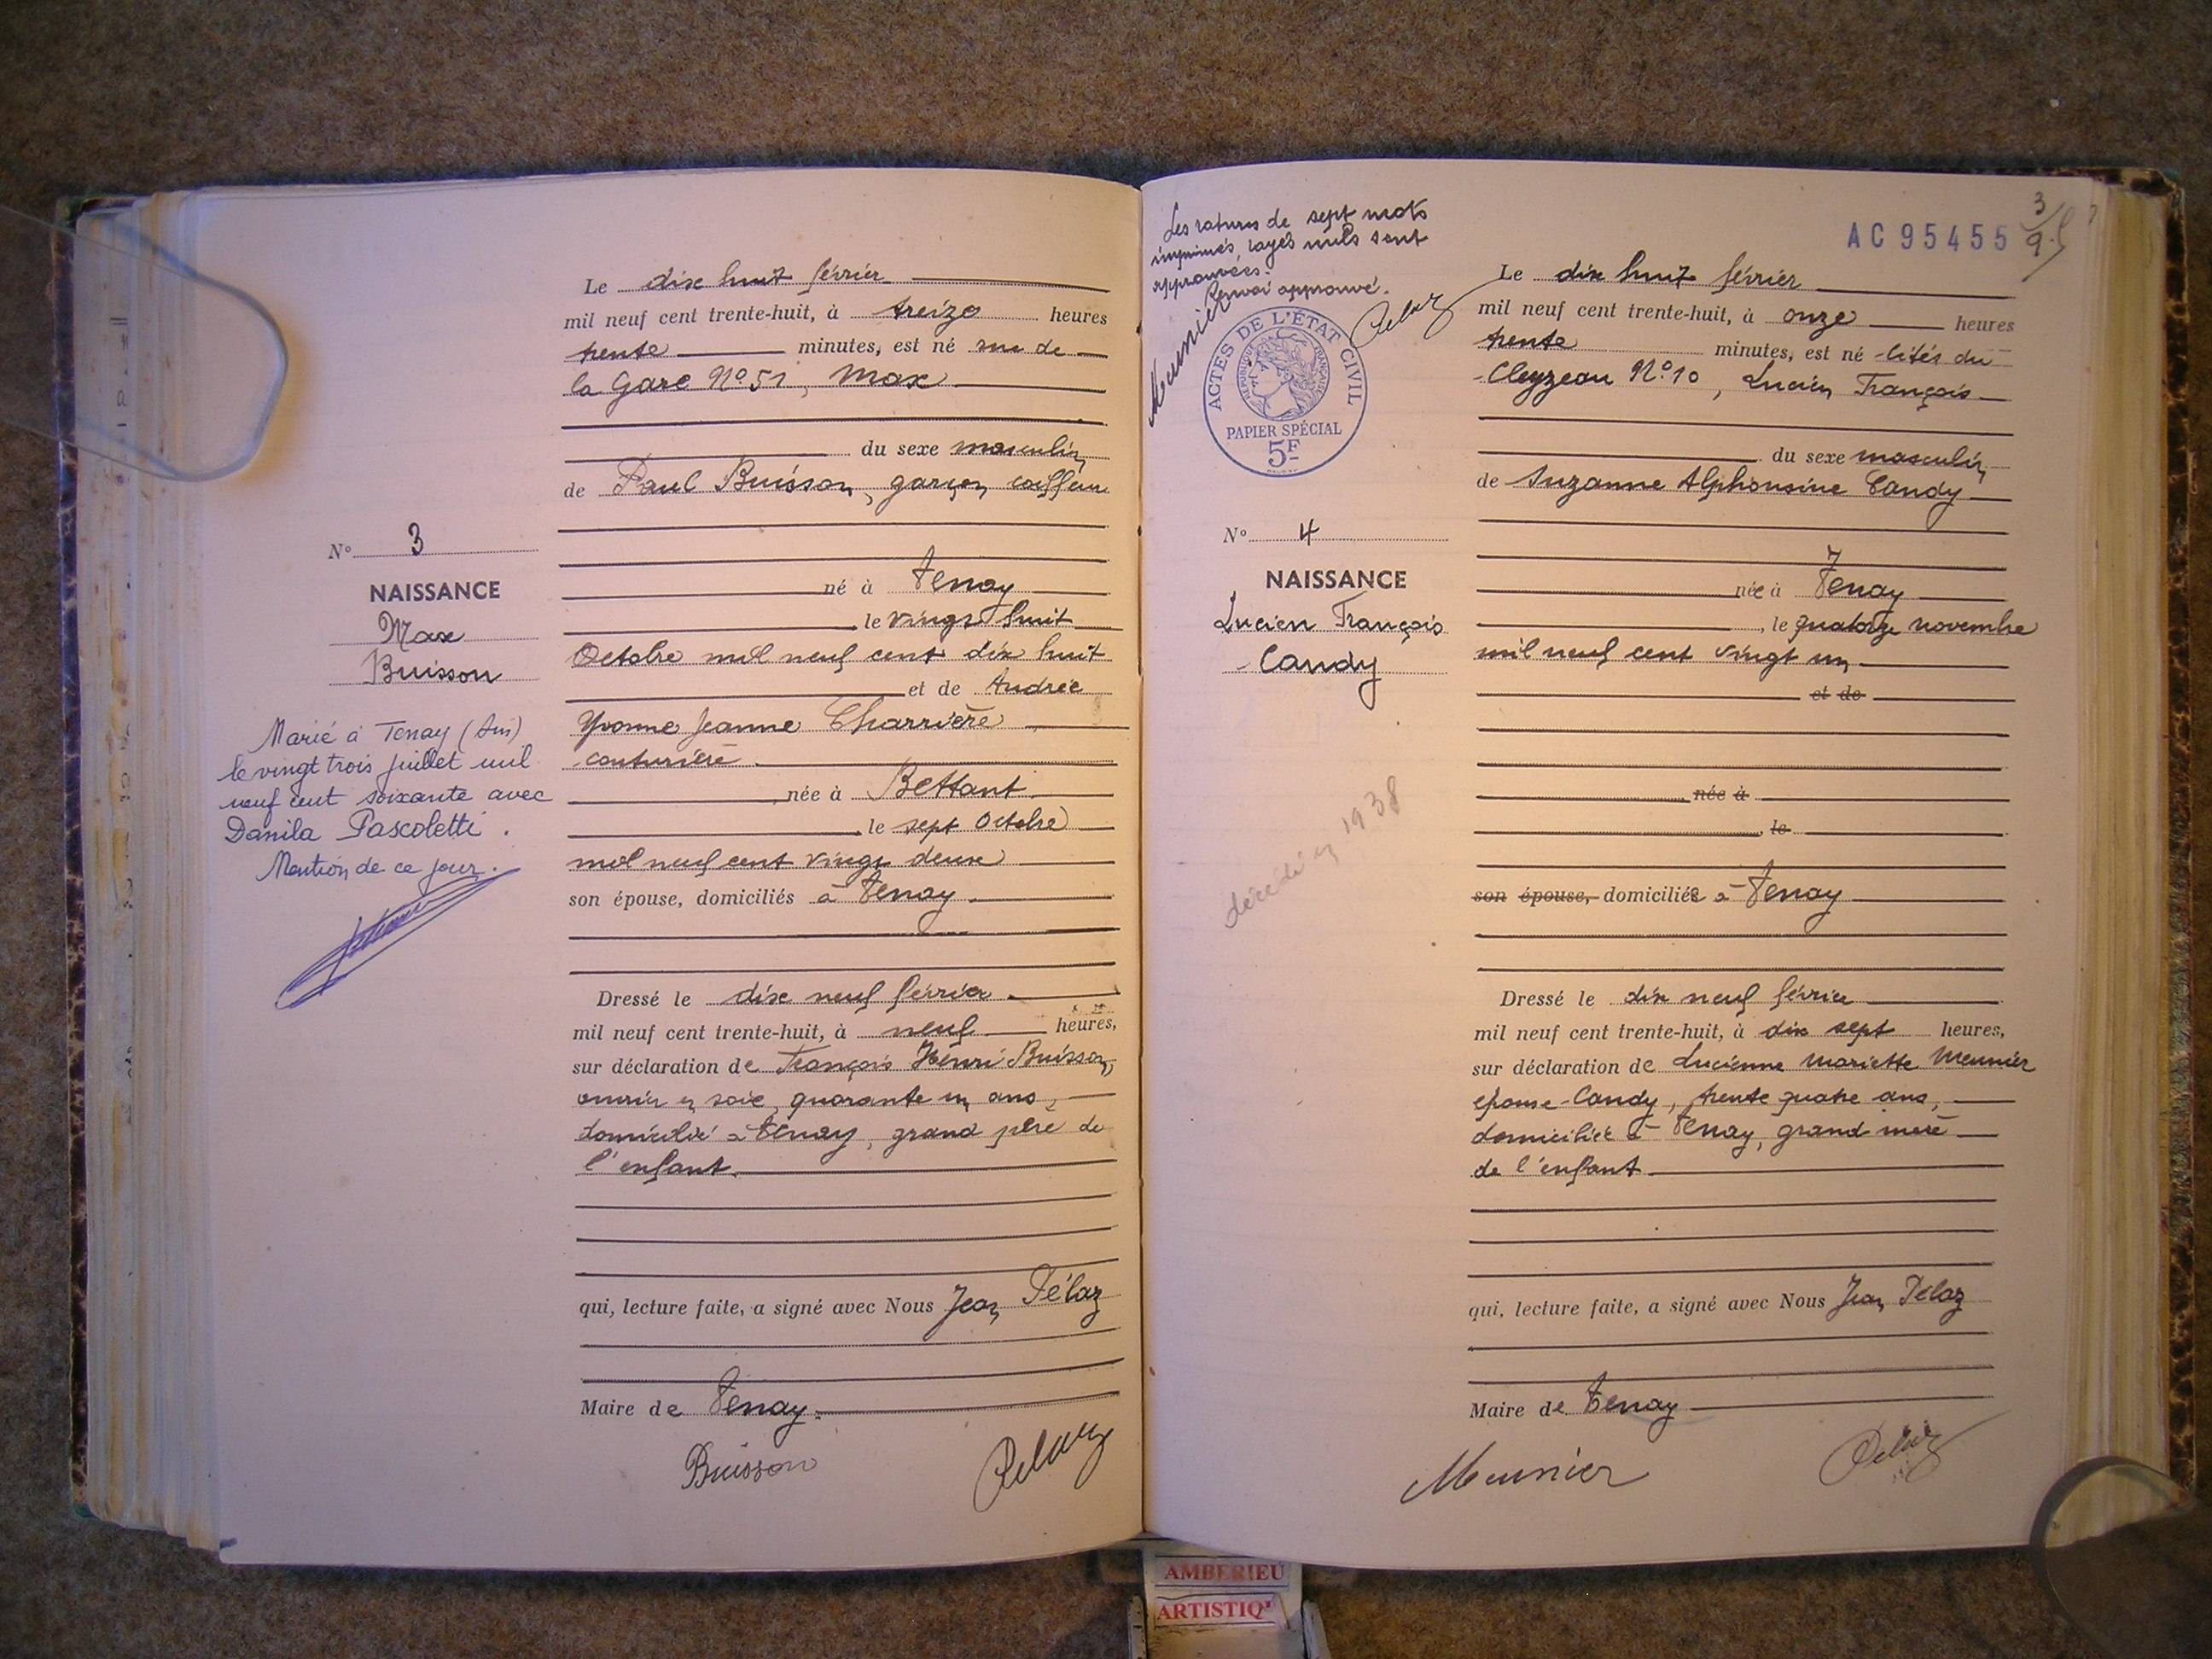 Le dix huit février
mil neuf cent trente-huit, à treize heures
trente minutes, est né rue de
la Gare N° 51, Max
du sexe masculin
de Paul Buisson, garçon coiffeur
N° 3
NAISSANCE
Max
Buisson
né à Tenay
, le vingt huit
Octobre mil neuf cent dix huit
et de Andrée
Yvonne Jeanne Charrière
couturière
née à Bettant
, le sept Octobre
mil neuf cent vingt deux
son épouse, domiciliés à Tenay
Marié à Tenay (Ain)
le vingt trois juillet mil
neuf cent soixante avec
Danila Pascoletti.
Mention de ce jour.
Dressé le dix neuf février
mil neuf cent trente-huit, à neuf heures,
sur déclaration de François Henri Buisson,
ouvrier en soie, quarante un ans,
domicilié à Tenay, grand père de
l'enfant.
qui, lecture faite, a signé avec Nous Jean Pélaz
Maire de Tenay.
Buisson Pelaz
Les ratures de sept mots
imprimés rayés nuls sont
approuvées.
Renvoi approuvé.
Meunier Pelaz
ACTES DE L'ÉTAT CIVIL
RÉPUBLIQUE FRANÇAISE
PAPIER SPÉCIAL
5F
AC 95455
3
9
Le dix huit février
mil neuf cent trente-huit, à onze heures
trente minutes, est né cités du
Cleyzeau N° 10, Lucien François
du sexe masculin
de Suzanne Alphonsine Candy
N° 4
NAISSANCE
Lucien François
Candy
née à Tenay
, le quatorze novembre
mil neuf cent vingt un
et de
née à
, le
son épouse, domiciliée à Tenay
décédé en 1938
Dressé le dix neuf février
mil neuf cent trente-huit, à dix sept heures,
sur déclaration de Lucienne Mariette Meunier
épouse Candy, trente quatre ans,
domiciliée à Tenay, grand mère
de l'enfant
qui, lecture faite, a signé avec Nous Jean Pélaz
Maire de Tenay
Meunier Pelaz
AMBERIEU
ARTISTIQ